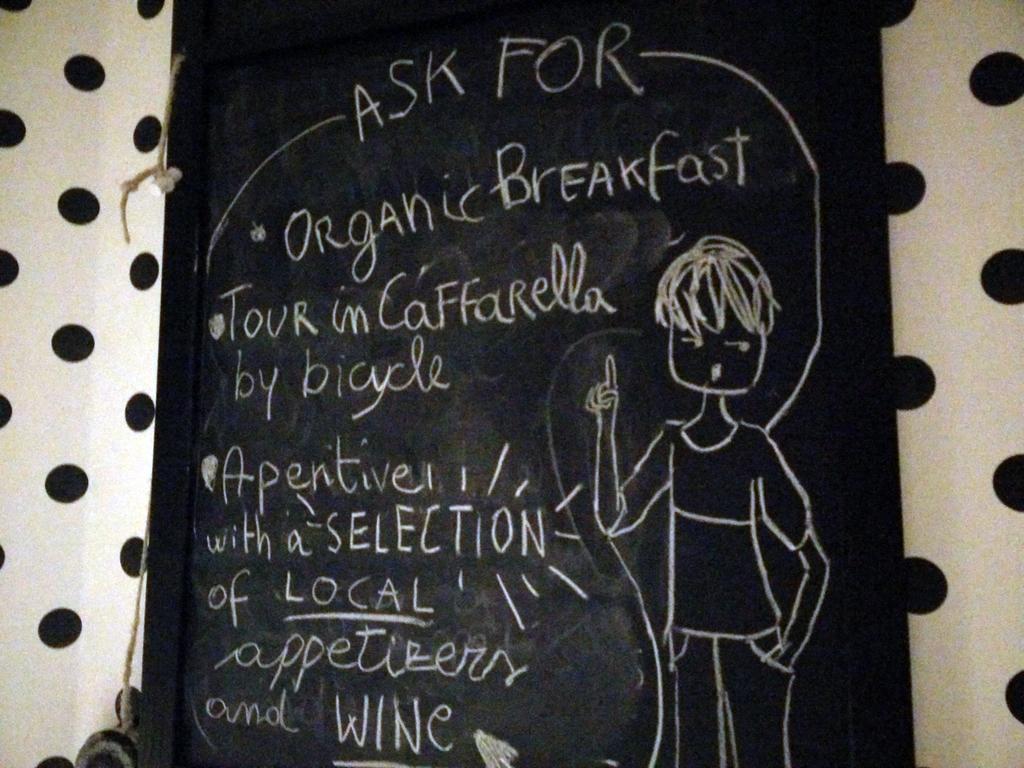 ASK FOR
• ORGANic BREAKfast
• TOUR in Caffarella
by bicycle
• Aperitive
with a SELECTION
of LOCAL
appetizers
and WINe